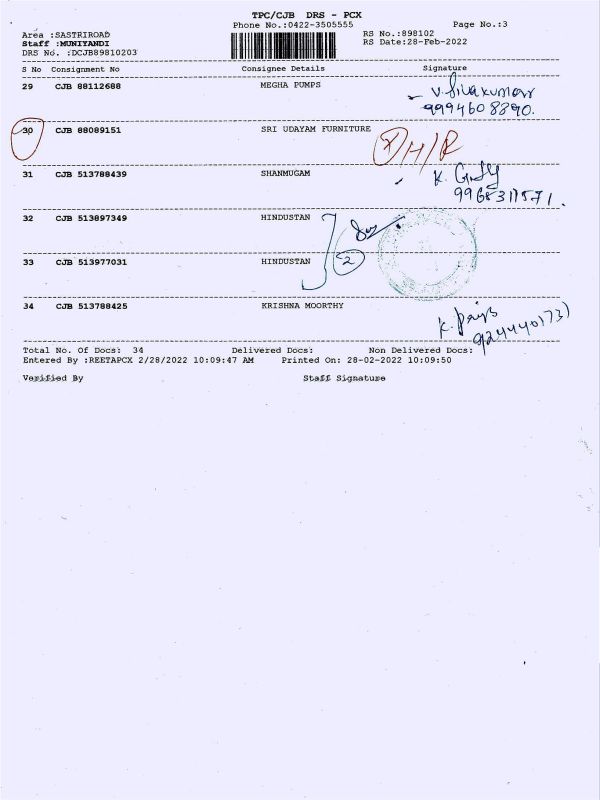 TPC/CJB DRS - PCX
Phone No.:0422-3505555 Page No.:3
Area :SASTRIROAD RS No.:898102
Staff :MUNIYANDI RS Date:28-Feb-2022
DRS No. :DCJB89810203
S No Consignment No Consignee Details Signature
29 CJB 88112688 MEGHA PUMPS V. Sivakumar
9994608890.
30 CJB 88089151 SRI UDAYAM FURNITURE H/R
31 CJB 513788439 SHANMUGAM K.
32 CJB 513897349 HINDUSTAN
2
33 CJB 513977031 HINDUSTAN
34 CJB 513788425 KRISHNA MOORTHY K.
9244401731
Total No. Of Docs: 34 Delivered Docs: Non Delivered Docs:
Entered By :REETAPCX 2/28/2022 10:09:47 AM Printed On: 28-02-2022 10:09:50
Verified By Staff Signature